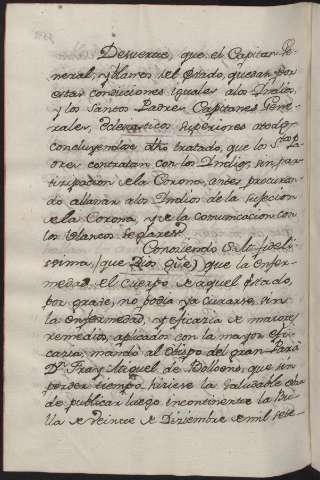 Desuerte, que el Capitan Ge-
neral, y blancos del Estado, quedan por
estas condiciones iguales a los Indios,
y los Santos Padres Capitanes Gene-
rales, Eclesiasticos, Superiores a todos,
concluyendose otro tratado, que los Stos Pa-
dres contratan con los Indios, sin par-
ticipacion de la Corona, antes procuran-
do allanar a los Indios de la sujecion
de la Corona, y de la comunicacion con
los blancos Seglares.
Conociendo S. M. fidelis-
sima, (que Dios gûe) que la enfer-
medad, el cuerpo de aquel Estado,
por grave, no podia ya curarse, sin
la enfermedad, y eficacia de mayores
remedios, aplicados con la mayor efi-
cacia, mandó al Obispo del gran Pará
Dn Fray Miguel de Bolloens, que sin
perder tiempo, hiciese la saludable obra
de publicar luego incontinente la Bu-
lla de veinte de Diziembre de mil sete-